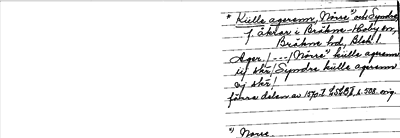 * Külle agerenn, Nörre *) och Syndre,
f. åkrar i Bräkne-Hoby sn,
Bräkne hd, Blek!
Ager. /---/ Nörre *) külle agerenn
ij skr/ Syndre külle agerenn
ij skr/
förra delen av 1570-t. s. 588. orig.
*) Norre